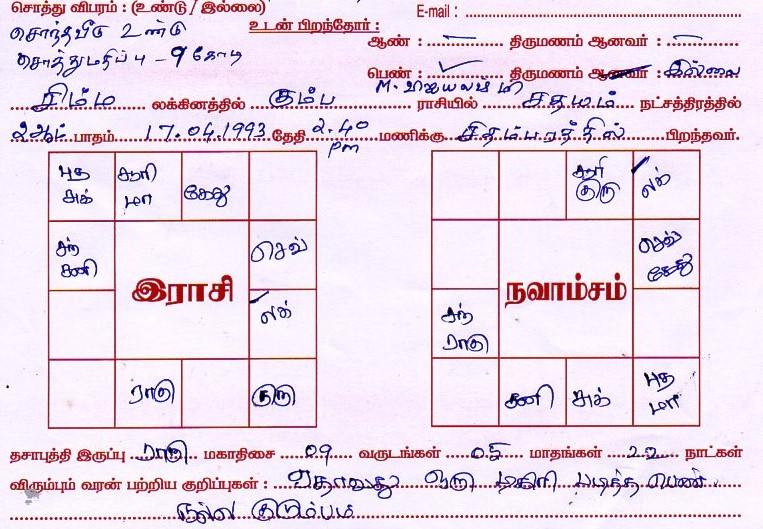 சொத்து விபரம் : (உண்டு / இல்லை)
E-mail :
சொந்தவீடு உண்டு
உடன் பிறந்தோர் :
ஆண் : — திருமணம் ஆனவர் : —
சொத்துமதிப்பு - 9 கோடி
பெண் : ✓ திருமணம் ஆனவர் : இல்லை
M. விஜயலஷ்மி
சிம்ம லக்கினத்தில் கும்ப ராசியில் சதயம் நட்சத்திரத்தில்
2ஆம் பாதம் 17.04.1993 தேதி 2.40 pm மணிக்கு சிதம்பரத்தில் பிறந்தவர்.
புத சுக்
சூரி மா
கேது
சந் சனி
செவ்
இராசி
லக்
ராகு
குரு
சூரி குரு
லக்
செவ் கேது
நவாம்சம்
சந் ராகு
சனி
சுக்
புத மா
தசாபுத்தி இருப்பு ராகு மகாதிசை 09 வருடங்கள் 05 மாதங்கள் 22 நாட்கள்
விரும்பும் வரன் பற்றிய குறிப்புகள் : ஏதாவது ஒரு டிகிரி படித்த பெண்
நல்ல குடும்பம்